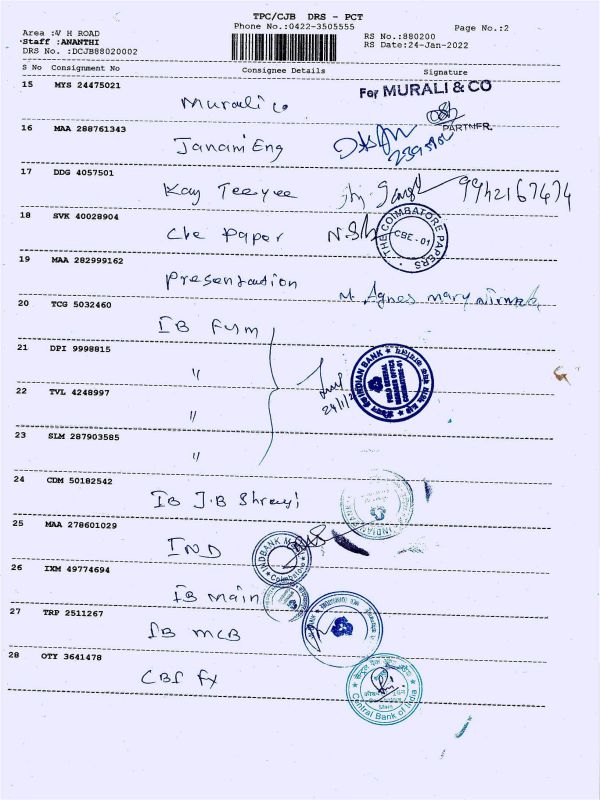 TPC/CJB DRS - PCT
Phone No.:0422-3505555
Page No.:2
Area :V H ROAD
Staff :ANANTHI
DRS No. :DCJB88020002
RS No.:880200
RS Date:24-Jan-2022
S No Consignment No Consignee Details Signature
15 MYS 24475021
Murali Co
For MURALI & CO
PARTNER.
16 MAA 288761343
Janani Eng
17 DDG 4057501
Kay Teeyee
18 SVK 40028904
Cbe Paper
THE COIMBATORE PAPERS
CBE - 01
19 MAA 282999162
Presentation
M. Agnes Mary Nirmala
20 TCG 5032460
IB Fym
21 DPI 9998815
"
INDIAN BANK
22 TVL 4248997
"
24/1/2
23 SLM 287903585
"
24 CDM 50182542
IB J.B
25 MAA 278601029
IND
INDBANK
Coimbatore
26 IXM 49774694
IB main
27 TRP 2511267
IB MCB
28 OTY 3641478
CBI Fx
Central Bank of India